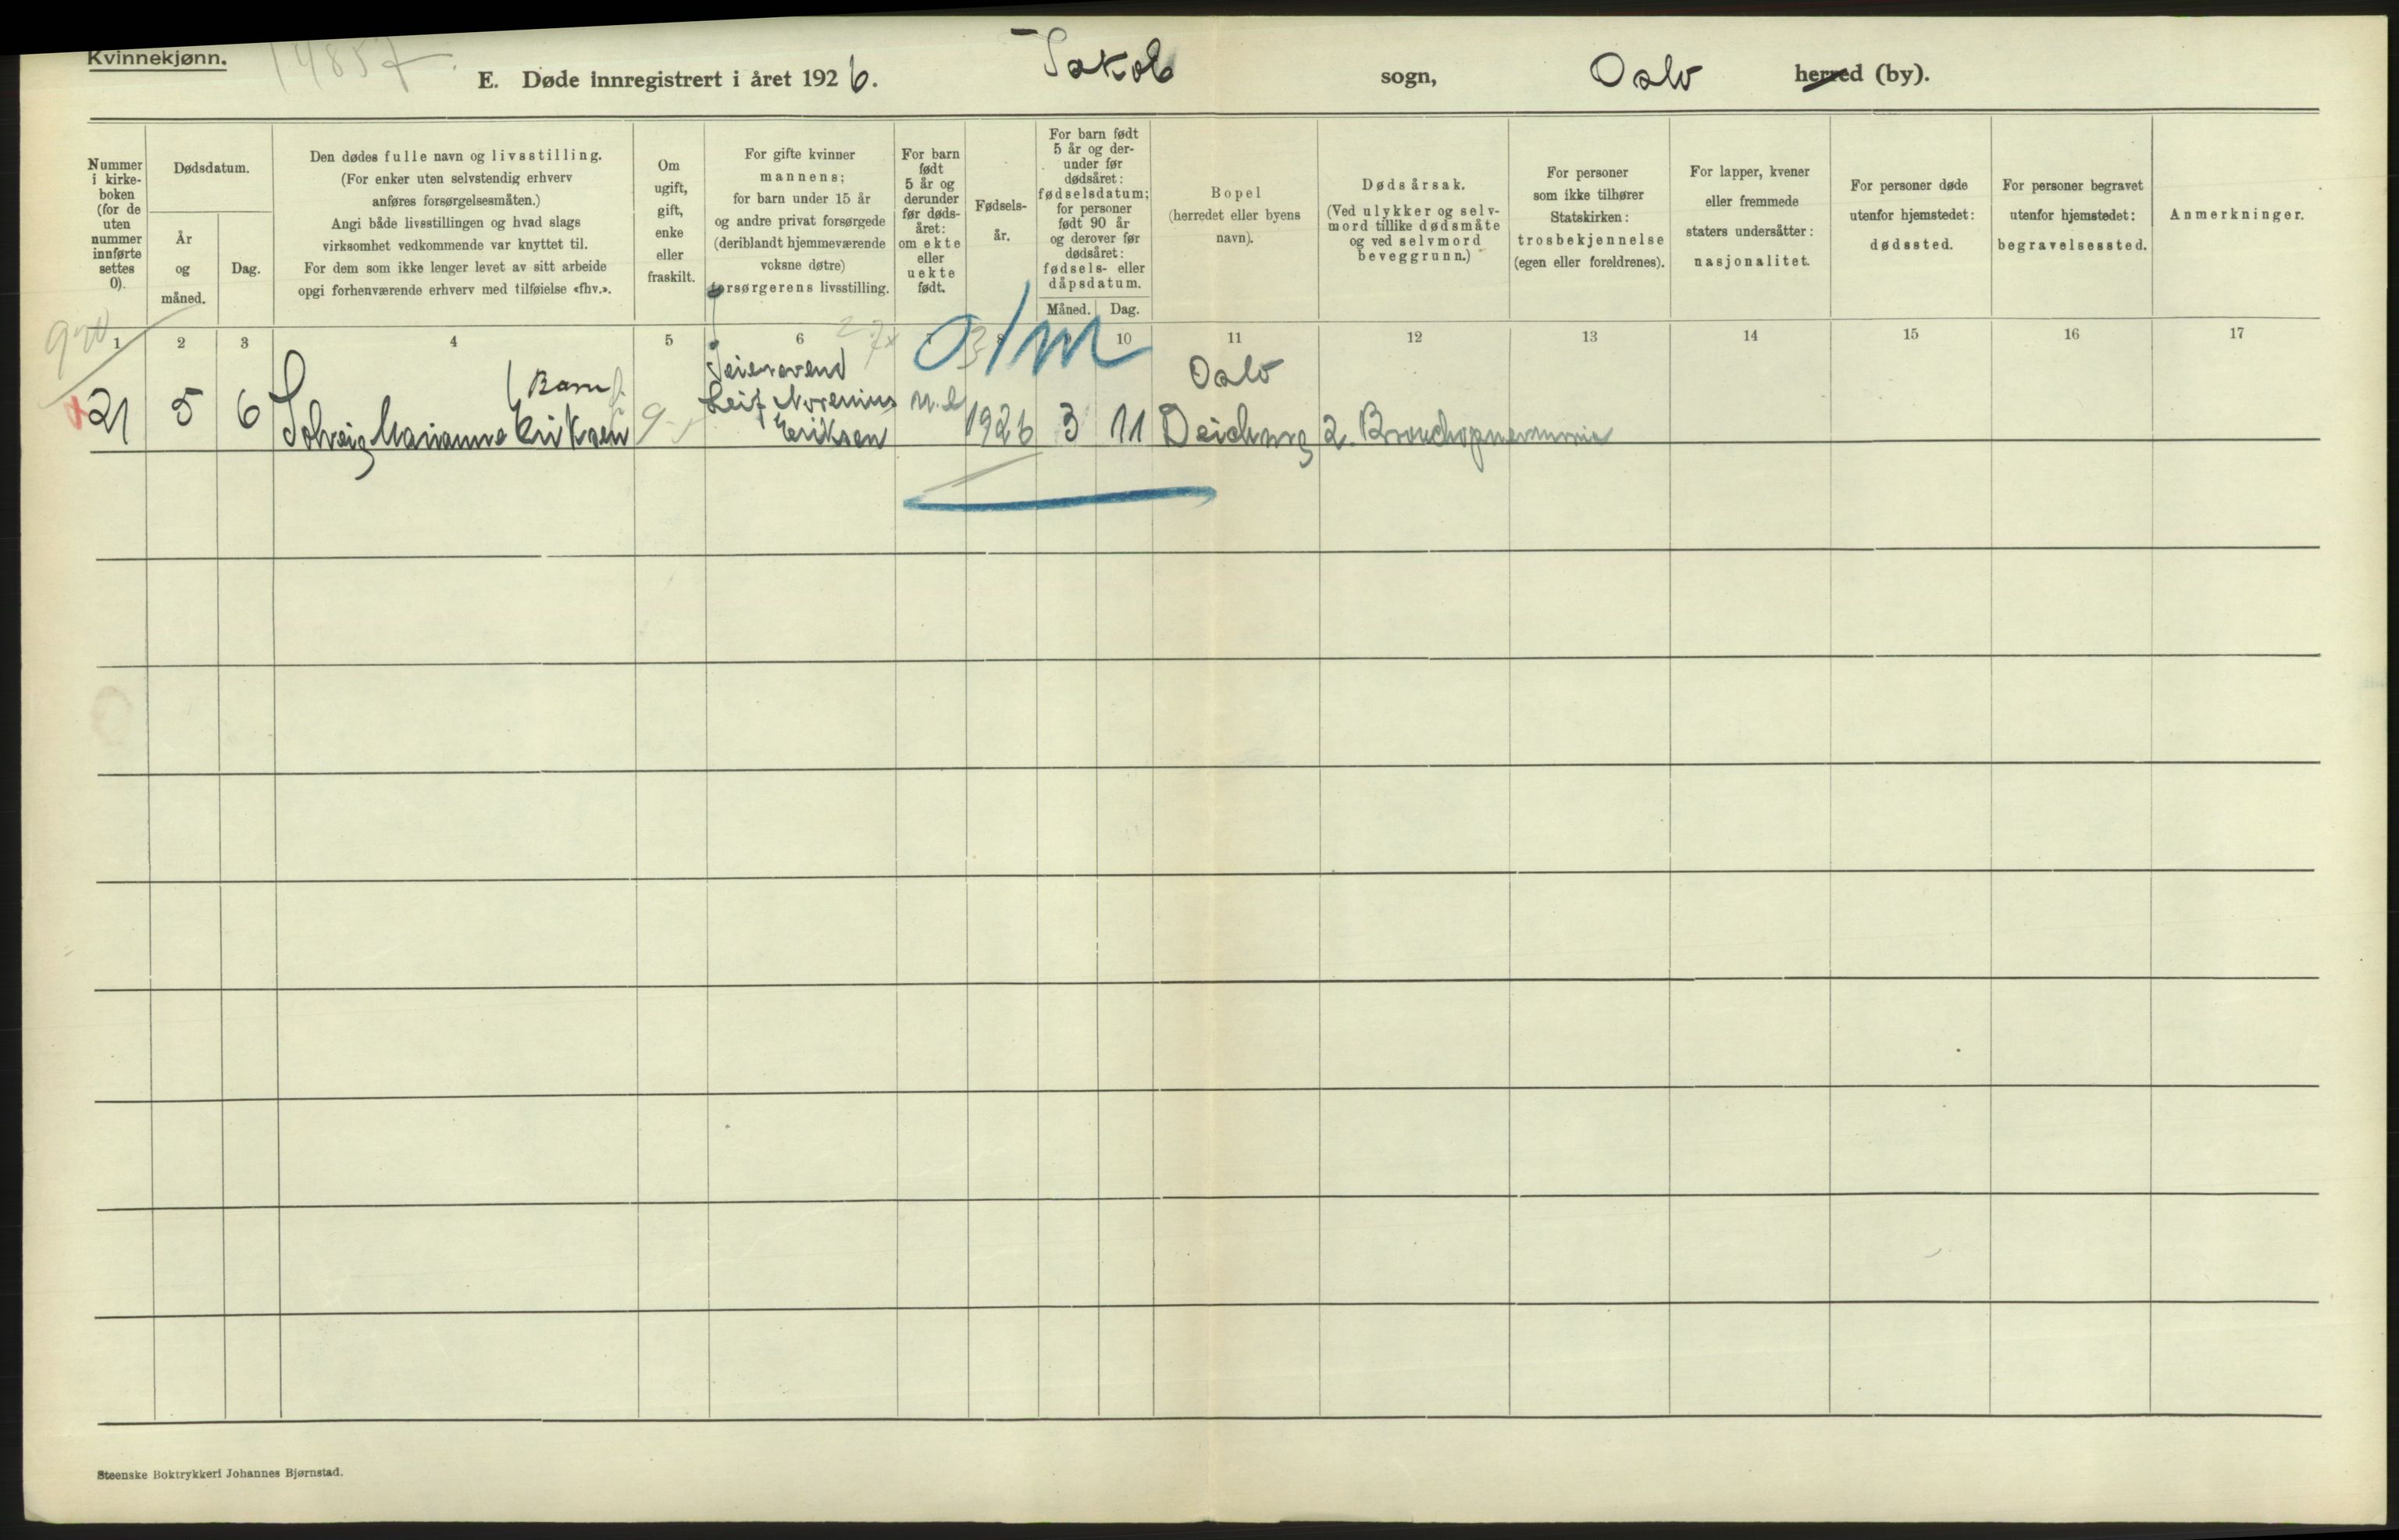 Kvinnekjønn.
14857.
E. Døde innregistrert i året 1926. Jakob sogn, Oslo herred (by).
Nummer i kirke-boken (for de uten nummer innførte settes 0).
Dødsdatum.
År og måned.
Dag.
Den dødes fulle navn og livsstilling.
(For enker uten selvstendig erhverv
anføres forsørgelsesmåten.)
Angi både livsstillingen og hvad slags
virksomhet vedkommende var knyttet til.
For dem som ikke lenger levet av sitt arbeide
opgi forhenværende erhverv med tilføielse «fhv.».
Om
ugift,
gift,
enke
eller
fraskilt.
For gifte kvinner
mannens;
for barn under 15 år
og andre privat forsørgede
(deriblandt hjemmeværende
voksne døtre)
forsørgerens livsstilling.
For barn
født
5 år og
derunder
før døds-
året:
om ekte
eller
uekte
født.
Fødsels-
år.
For barn født
5 år og der-
under før
dødsåret:
fødselsdatum;
for personer
født 90 år
og derover før
dødsåret:
fødsels- eller
dåpsdatum.
Måned. Dag.
Bopel
(herredet eller byens
navn).
Dødsårsak.
(Ved ulykker og selv-
mord tillike dødsmåte
og ved selvmord
beveggrunn.)
For personer
som ikke tilhører
Statskirken:
trosbekjennelse
(egen eller foreldrenes).
For lapper, kvener
eller fremmede
staters undersåtter:
nasjonalitet.
For personer døde
utenfor hjemstedet:
dødssted.
For personer begravet
utenfor hjemstedet:
begravelsessted.
Anmerkninger.
1 2 3 4 5 6 7 8 10 11 12 13 14 15 16 17
0/m
(Barn)
Leif
Oslo
21 5 6 Solveig Marianne Eriksen g Eriksen u.e 1926 3 11 Deichmg 2. Bronchopneumoni
Steenske Boktrykkeri Johannes Bjørnstad.